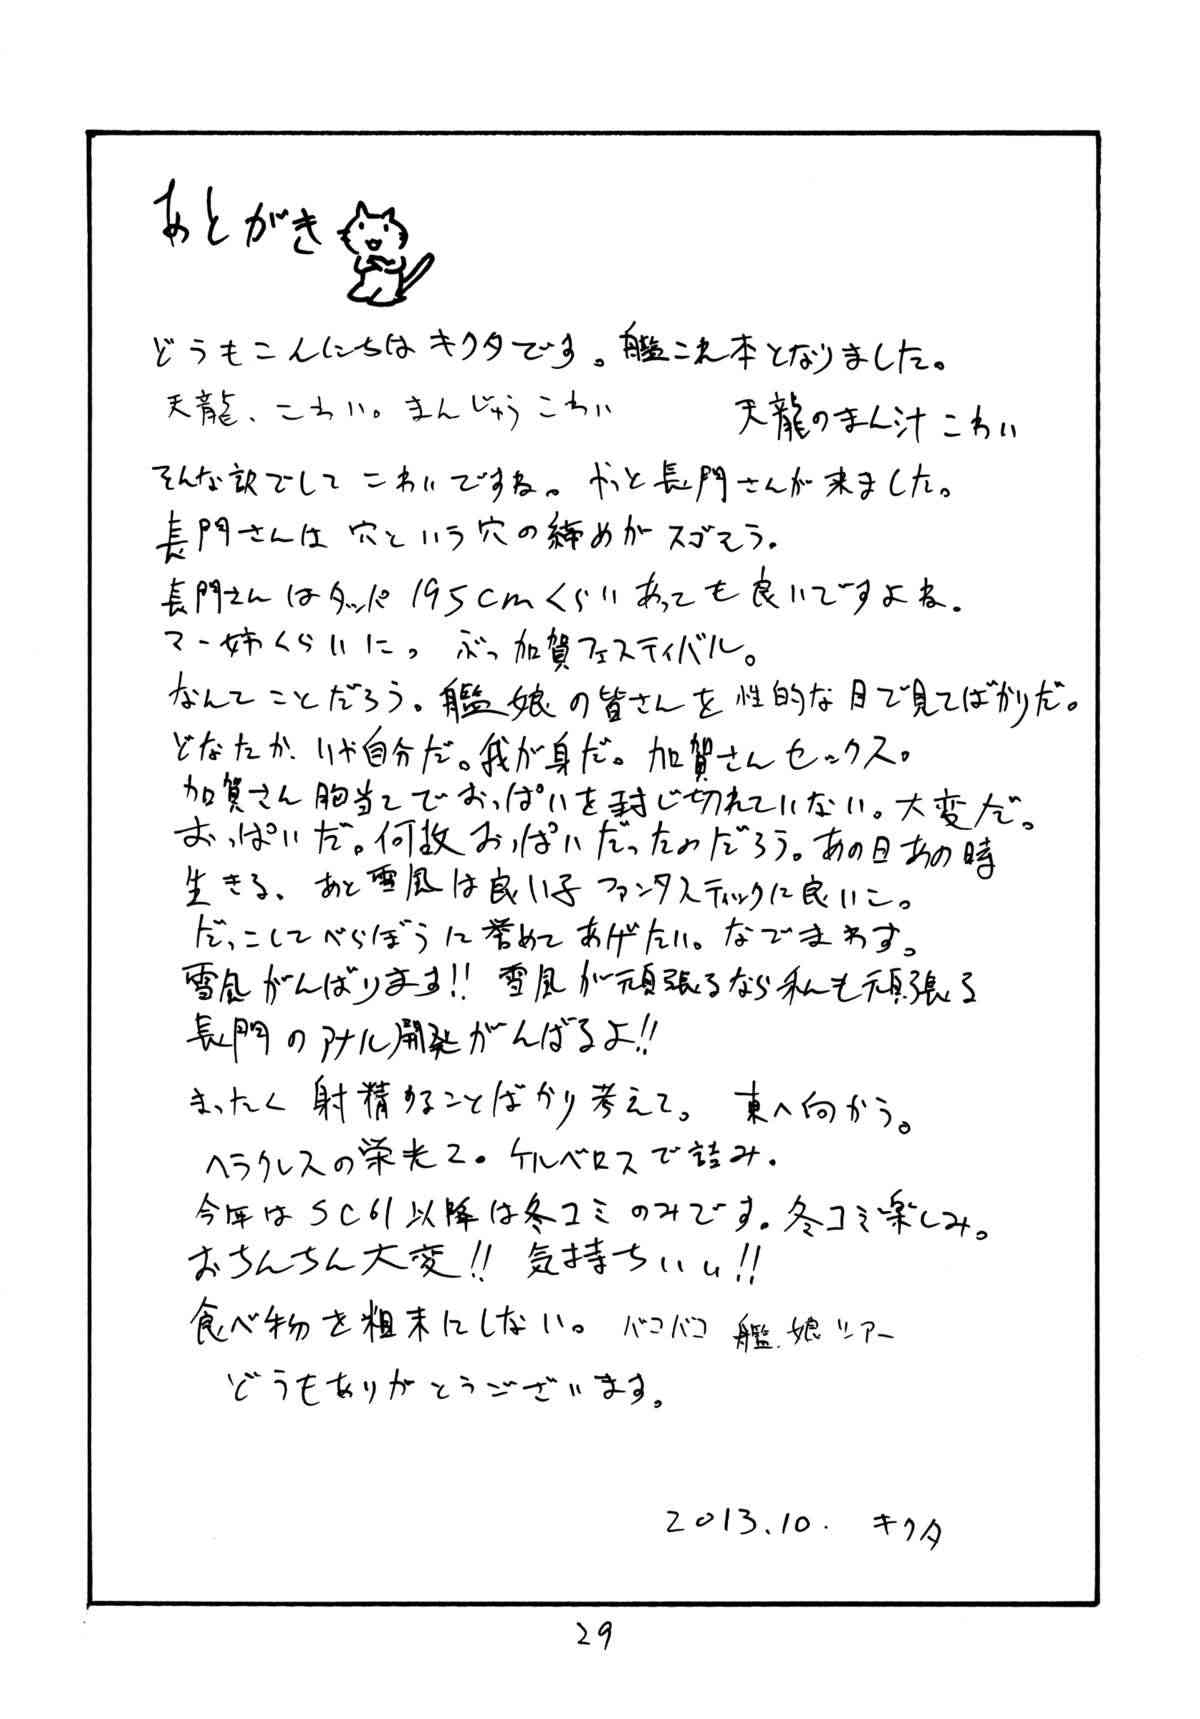 あとがき
どうもこんにちはキクタです。艦これ本となりました。
天龍、こわい。まんじゅうこわい 天龍のまん汁こわい
そんな訳でして こわいですね。やっと長門さんが来ました。
長門さんは 穴という穴の締めがスゴそう。
長門さんはタッパ 195cmくらいあっても良いですよね。
マー姉くらいに。 ぶっ加賀フェスティバル。
なんてことだろう。艦娘の皆さんを性的な目で見てばかりだ。
どなたか、いや自分だ。我が身だ。加賀さんセックス。
加賀さん胸当てでおっぱいを封じ切れていない。大変だ。
おっぱいだ。何故おっぱいだったのだろう。あの日あの時
生きる、あと雪風は良い子 ファンタスティックに良いこ。
だっこしてべらぼうに誉めてあげたい。なでまわす。
雪風がんばります!! 雪風が頑張るなら私も頑張る
長門のアナル開発がんばるよ!!
まったく射精することばかり考えて。 東へ向かう。
ヘラクレスの栄光2。ケルベロスで詰み。
今年はSC61以降は冬コミのみです。冬コミ楽しみ。
おちんちん大変!! 気持ちいい!!
食べ物を粗末にしない。 バコバコ 艦娘ツアー
どうもありがとうございます。
2013.10. キクタ
29